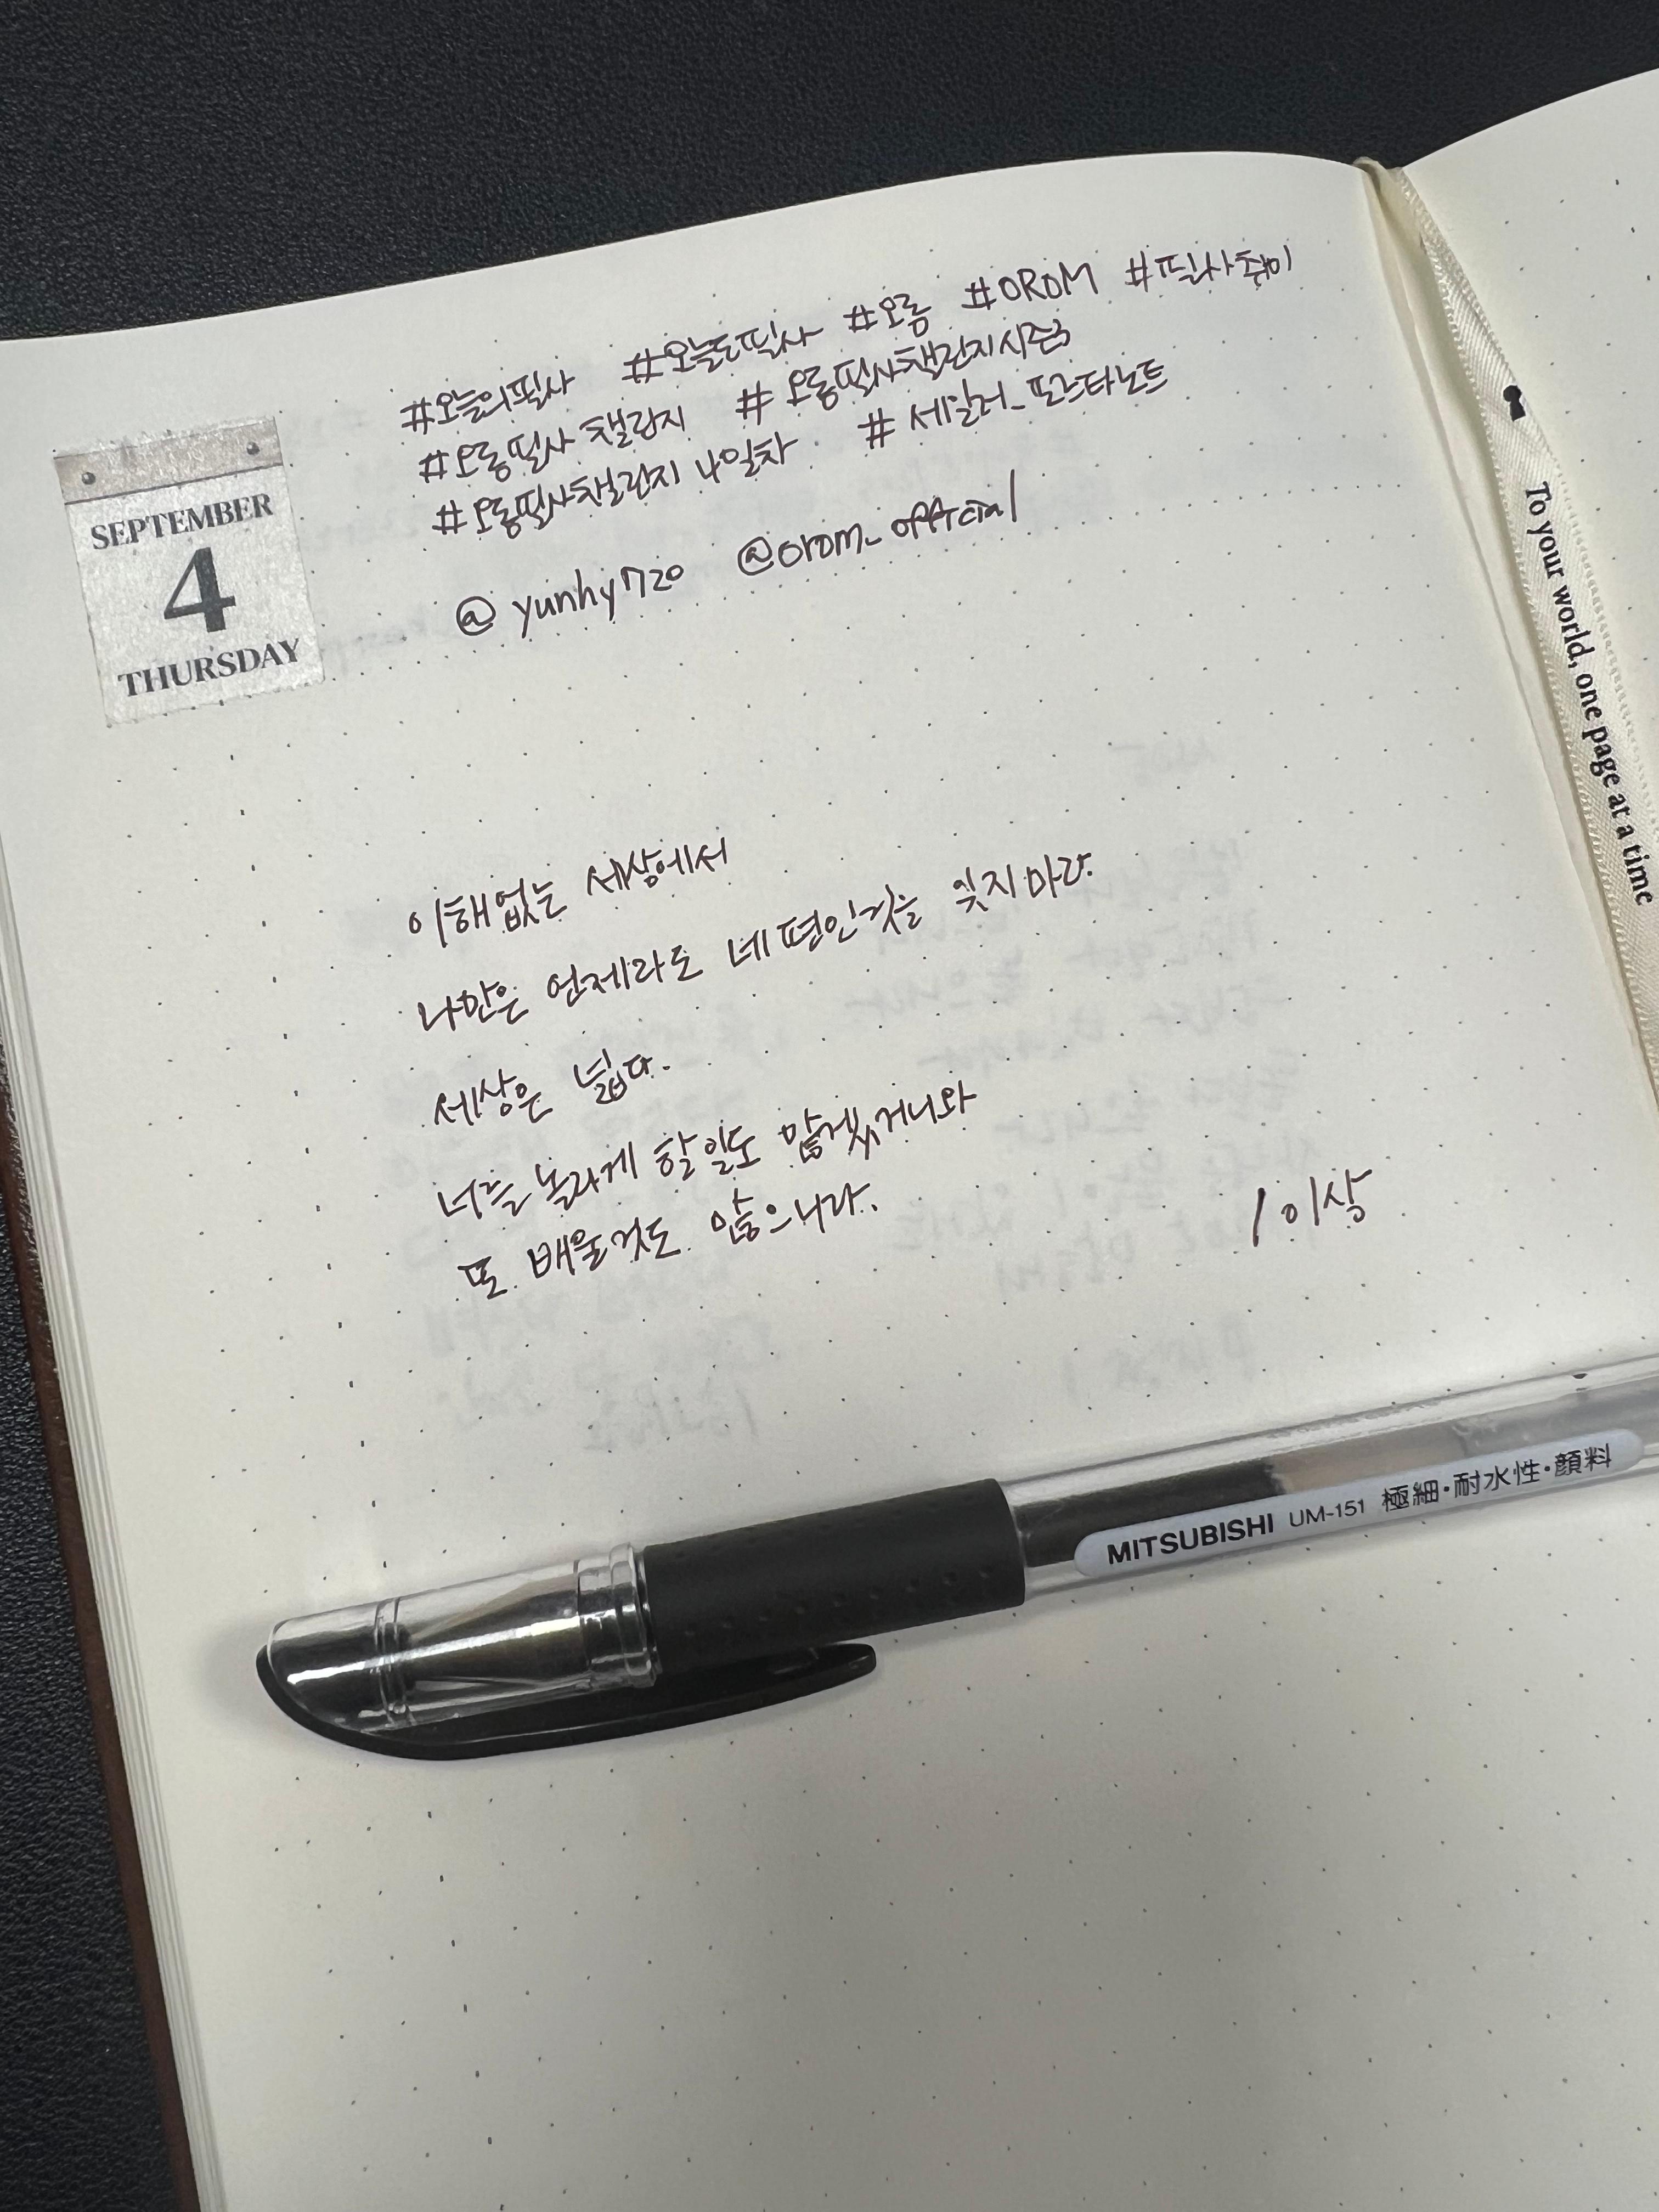 SEPTEMBER
4
THURSDAY
#오늘의필사 #오늘도필사 #오롬 #OROM #필사취미
#오롬필사챌린지 #오롬필사챌린지시즌3
#오롬필사챌린지4일차 #세일러_포스타노트
@yunhy720 @orom_official
이해없는 세상에서
나만은 언제라도 네편인것을 잊지마라.
세상은 넓다.
너를 놀라게 할일도 많겠거니와
또 배울것도 많으니라.
/이상
To your world, one page at a time
MITSUBISHI UM-151 極細・耐水性・顔料